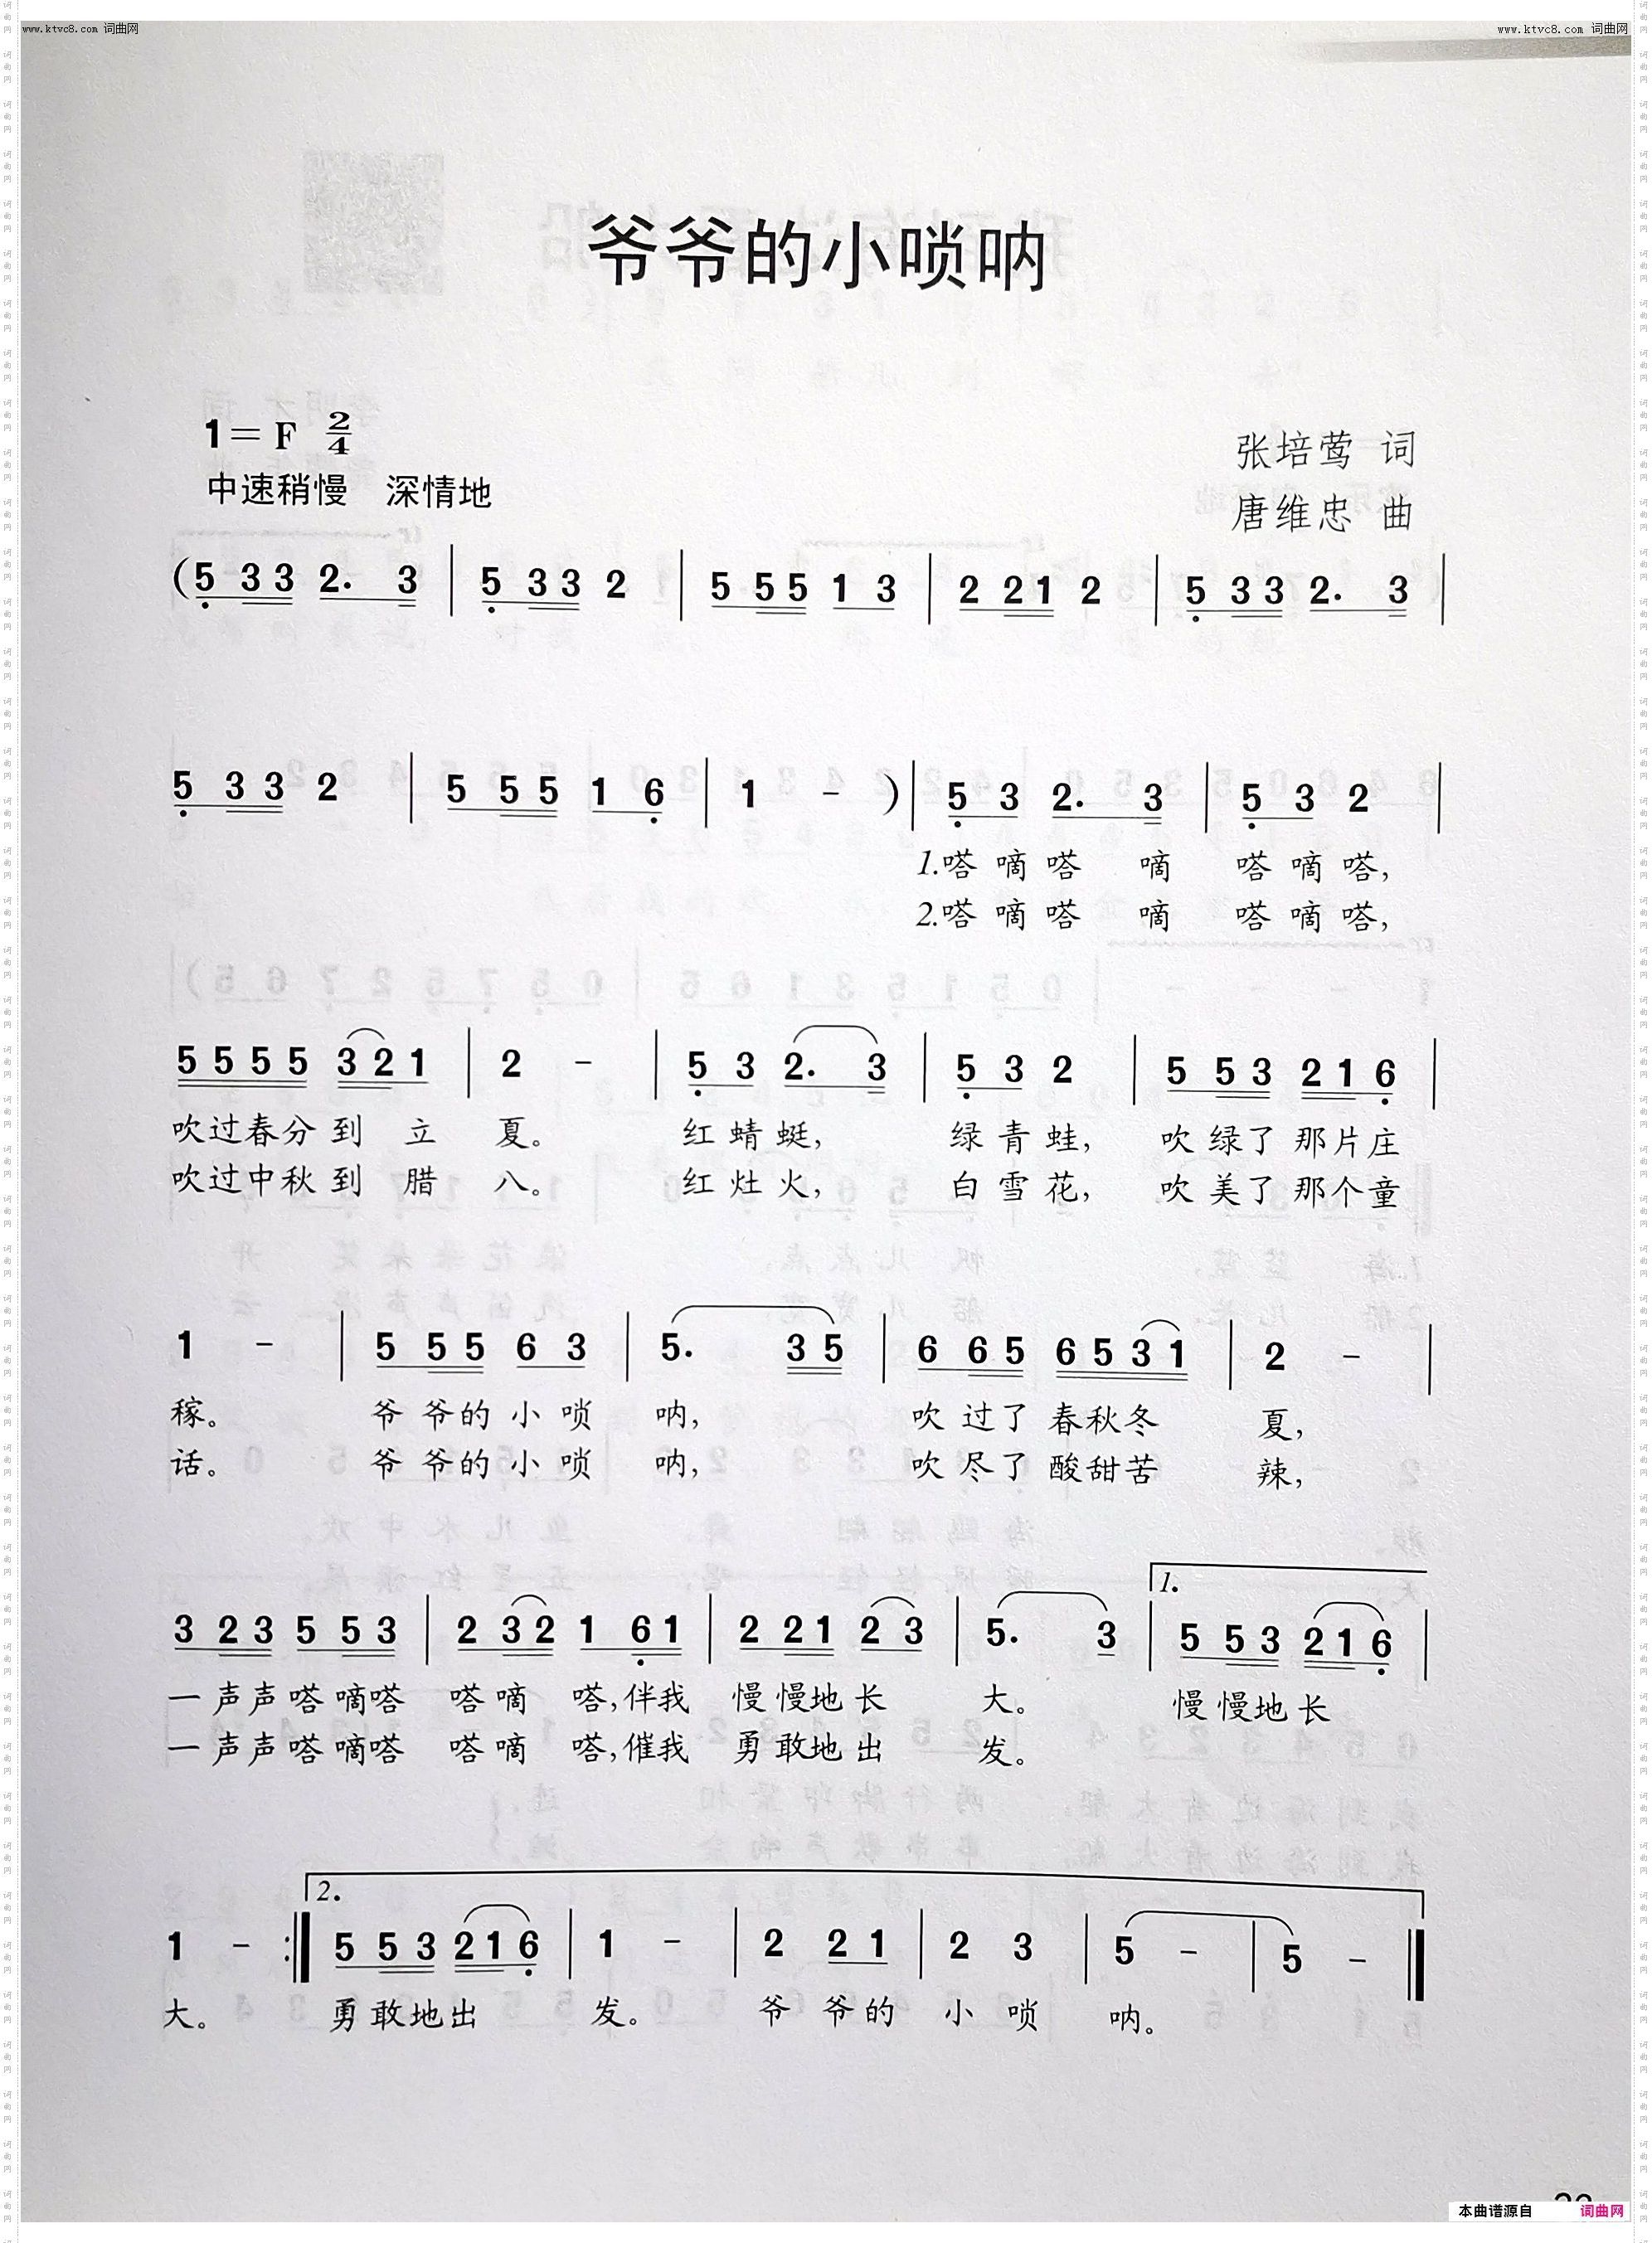 www.ktvc8.com 词曲网
www.ktvc8.com 词曲网
爷爷的小唢呐
1=F 2/4
中速稍慢 深情地
张培莺 词
唐维忠 曲
(5 33 2. 3 | 5 33 2 | 5 55 1 3 | 2 21 2 | 5 33 2. 3 |
5 33 2 | 5 55 1 6 | 1 - ) | 5 3 2. 3 | 5 3 2 |
1.嗒 嘀 嗒 嘀 嗒 嘀 嗒,
2.嗒 嘀 嗒 嘀 嗒 嘀 嗒,
5 5 5 5 3 2 1 | 2 - | 5 3 2. 3 | 5 3 2 | 5 53 216 |
吹过春分到 立 夏。 红 蜻 蜓, 绿 青 蛙, 吹 绿了 那片庄
吹过中秋到 腊 八。 红 灶 火, 白 雪 花, 吹 美了 那个童
1 - | 5 55 6 3 | 5. 35 | 6 65 6531 | 2 - |
稼。 爷 爷的 小 唢 呐, 吹 过了 春秋冬 夏,
话。 爷 爷的 小 唢 呐, 吹 尽了 酸甜苦 辣,
1.
3 23 5 53 | 2 32 1 61 | 2 21 2 3 | 5. 3 | 5 53 216 |
一 声声 嗒 嘀嗒 嗒 嘀 嗒,伴我 慢 慢地 长 大。 慢 慢地 长
一 声声 嗒 嘀嗒 嗒 嘀 嗒,催我 勇 敢地 出 发。
2.
1 - :‖ 5 53 216 | 1 - | 2 21 | 2 3 | 5 - | 5 - ‖
大。 勇 敢地 出 发。 爷 爷的 小 唢 呐。
本曲谱源自 词曲网